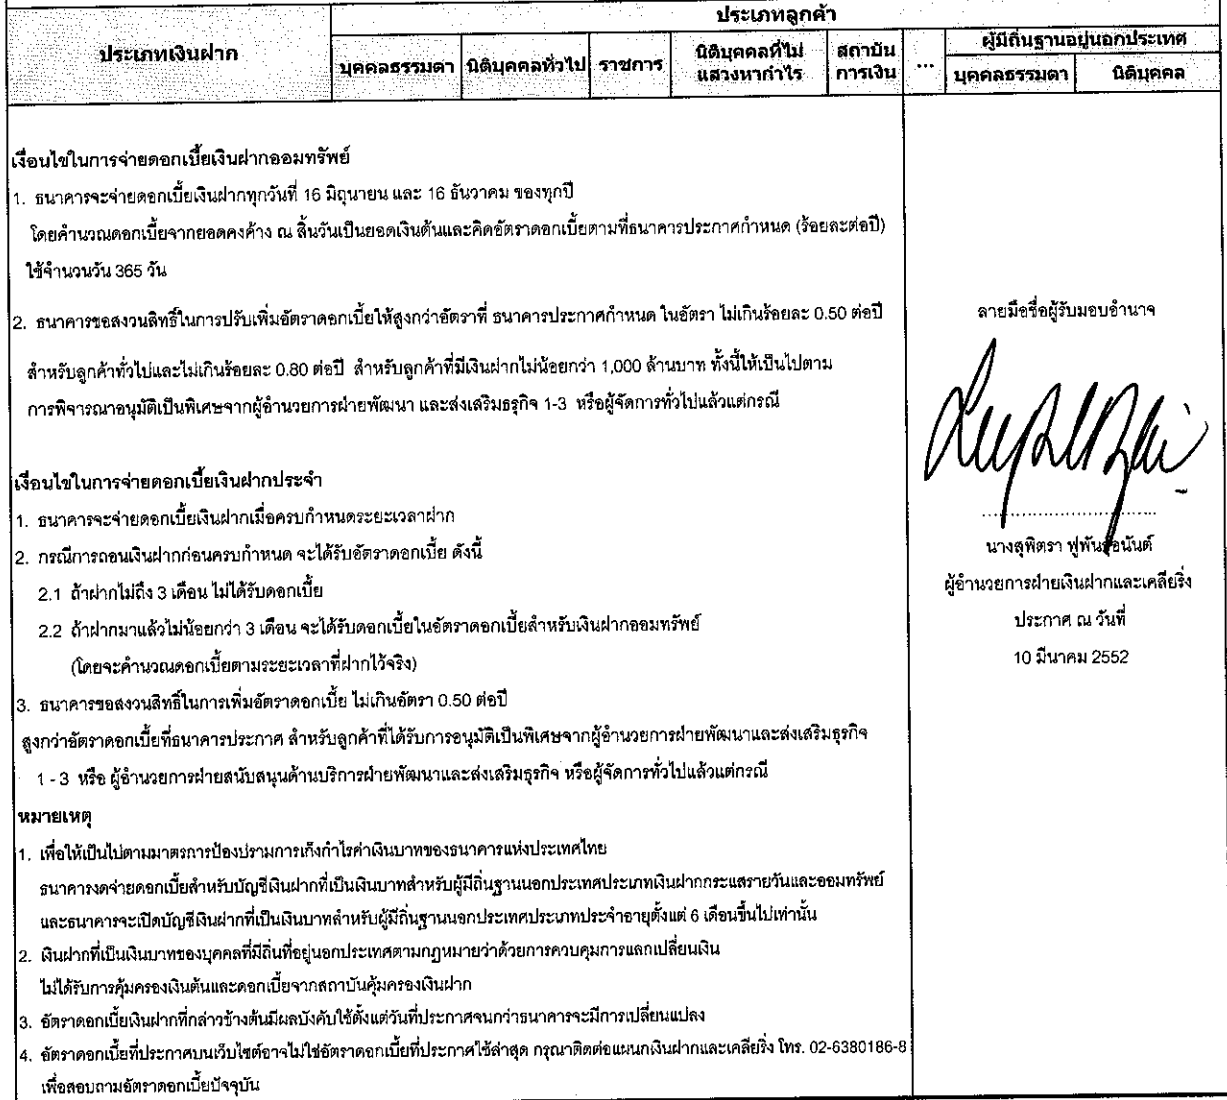 ประเภทเงินฝาก
ประเภทลูกค้า
บุคคลธรรมดา นิติบุคคลทั่วไป ราชการ นิติบุคคลที่ไม่แสวงหากำไร สถาบันการเงิน ... ผู้มีถิ่นฐานอยู่นอกประเทศ
บุคคลธรรมดา นิติบุคคล
เงื่อนไขในการจ่ายดอกเบี้ยเงินฝากออมทรัพย์
1. ธนาคารจะจ่ายดอกเบี้ยเงินฝากทุกวันที่ 16 มิถุนายน และ 16 ธันวาคม ของทุกปี
โดยคำนวณดอกเบี้ยจากยอดคงค้าง ณ สิ้นวันเป็นยอดเงินต้นและคิดอัตราดอกเบี้ยตามที่ธนาคารประกาศกำหนด (ร้อยละต่อปี)
ใช้จำนวนวัน 365 วัน
2. ธนาคารขอสงวนสิทธิ์ในการปรับเพิ่มอัตราดอกเบี้ยให้สูงกว่าอัตราที่ ธนาคารประกาศกำหนด ในอัตรา ไม่เกินร้อยละ 0.50 ต่อปี
สำหรับลูกค้าทั่วไปและไม่เกินร้อยละ 0.80 ต่อปี สำหรับลูกค้าที่มีเงินฝากไม่น้อยกว่า 1,000 ล้านบาท ทั้งนี้ให้เป็นไปตาม
การพิจารณาอนุมัติเป็นพิเศษจากผู้อำนวยการฝ่ายพัฒนา และส่งเสริมธุรกิจ 1-3 หรือผู้จัดการทั่วไปแล้วแต่กรณี
เงื่อนไขในการจ่ายดอกเบี้ยเงินฝากประจำ
1. ธนาคารจะจ่ายดอกเบี้ยเงินฝากเมื่อครบกำหนดระยะเวลาฝาก
2. กรณีการถอนเงินฝากก่อนครบกำหนด จะได้รับอัตราดอกเบี้ย ดังนี้
2.1 ถ้าฝากไม่ถึง 3 เดือน ไม่ได้รับดอกเบี้ย
2.2 ถ้าฝากมาแล้วไม่น้อยกว่า 3 เดือน จะได้รับดอกเบี้ยในอัตราดอกเบี้ยสำหรับเงินฝากออมทรัพย์
(โดยจะคำนวณดอกเบี้ยตามระยะเวลาที่ฝากไว้จริง)
3. ธนาคารขอสงวนสิทธิ์ในการเพิ่มอัตราดอกเบี้ย ไม่เกินอัตรา 0.50 ต่อปี
สูงกว่าอัตราดอกเบี้ยที่ธนาคารประกาศ สำหรับลูกค้าที่ได้รับการอนุมัติเป็นพิเศษจากผู้อำนวยการฝ่ายพัฒนาและส่งเสริมธุรกิจ
1 - 3 หรือ ผู้อำนวยการฝ่ายสนับสนุนด้านบริการฝ่ายพัฒนาและส่งเสริมธุรกิจ หรือผู้จัดการทั่วไปแล้วแต่กรณี
หมายเหตุ
1. เพื่อให้เป็นไปตามมาตรการป้องปรามการเก็งกำไรค่าเงินบาทของธนาคารแห่งประเทศไทย
ธนาคารงดจ่ายดอกเบี้ยสำหรับบัญชีเงินฝากที่เป็นเงินบาทสำหรับผู้มีถิ่นฐานนอกประเทศประเภทเงินฝากกระแสรายวันและออมทรัพย์
และธนาคารจะเปิดบัญชีเงินฝากที่เป็นเงินบาทสำหรับผู้มีถิ่นฐานนอกประเทศประเภทประจำอายุตั้งแต่ 6 เดือนขึ้นไปเท่านั้น
2. เงินฝากที่เป็นเงินบาทของบุคคลที่มีถิ่นที่อยู่นอกประเทศตามกฎหมายว่าด้วยการควบคุมการแลกเปลี่ยนเงิน
ไม่ได้รับการคุ้มครองเงินต้นและดอกเบี้ยจากสถาบันคุ้มครองเงินฝาก
3. อัตราดอกเบี้ยเงินฝากที่กล่าวข้างต้นมีผลบังคับใช้ตั้งแต่วันที่ประกาศจนกว่าธนาคารจะมีการเปลี่ยนแปลง
4. อัตราดอกเบี้ยที่ประกาศบนเว็บไซต์อาจไม่ใช่อัตราดอกเบี้ยที่ประกาศใช้ล่าสุด กรุณาติดต่อแผนกเงินฝากและเคลียริ่ง โทร. 02-6380186-8
เพื่อสอบถามอัตราดอกเบี้ยปัจจุบัน
ลายมือชื่อผู้รับมอบอำนาจ
นางสุพิตรา ฟูพันธ์อนันต์
ผู้อำนวยการฝ่ายเงินฝากและเคลียริ่ง
ประกาศ ณ วันที่
10 มีนาคม 2552